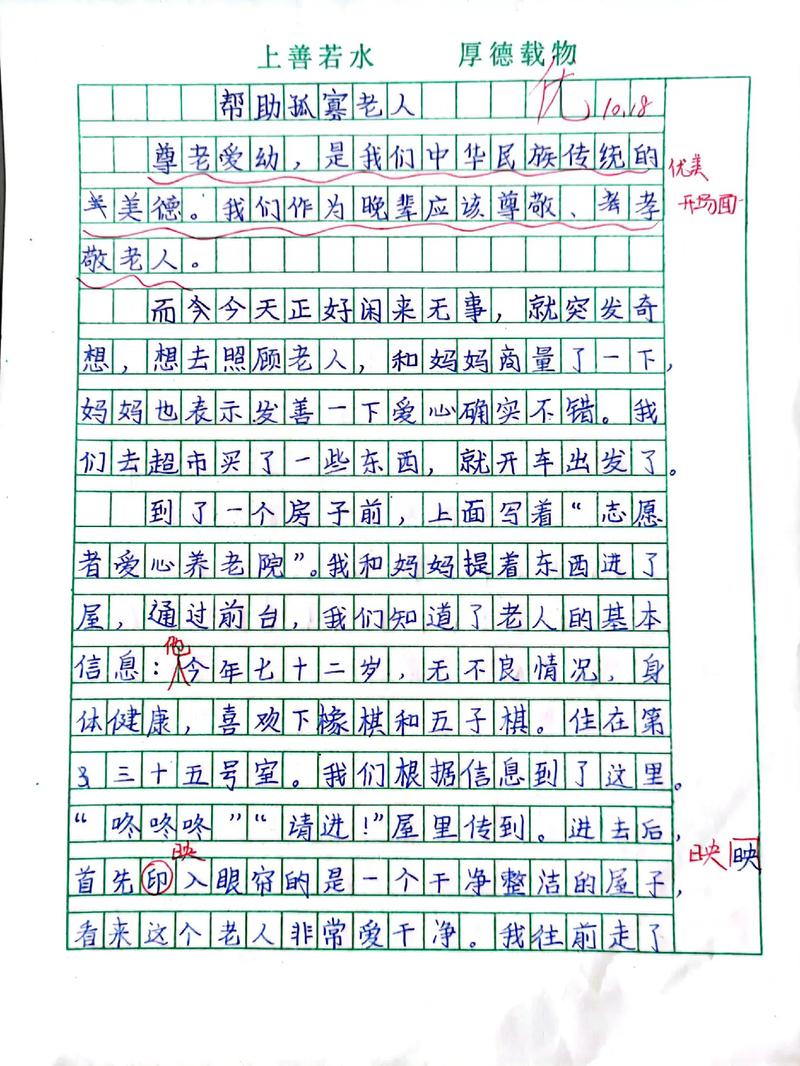 上善若水 厚德载物
帮助孤寡老人 优 10.18
尊老爱幼，是我们中华民族传统的 优美
美德。我们作为晚辈应该尊敬、孝 开场面
敬老人。
而今今天正好闲来无事，就突发奇
想，想去照顾老人，和妈妈商量了一下，
妈妈也表示发善一下爱心确实不错。我
们去超市买了一些东西，就开车出发了。
到了一个房子前，上面写着“志愿
者爱心养老院”。我和妈妈提着东西进了
屋，通过前台，我们知道了老人的基本
他
信息：今年七十二岁，无不良情况，身
体健康，喜欢下橡棋和五子棋。住在第
三十五号室。我们根据信息到了这里。
“咚咚咚”“请进！”屋里传到。进去后，
映 映 映
首先印入眼帘的是一个干净整洁的屋子，
看来这个老人非常爱干净。我往前走了